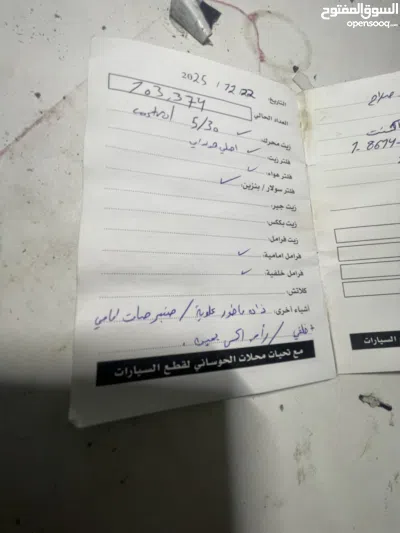 السوق المفتوح
opensooq.com
التاريخ: 22 / 12 / 2025
العداد الحالي 203,374
زيت محرك: ✓ 5/30 castrol
فلتر زيت: ✓ اصلي هونداي
فلتر هواء: ✓
فلتر سولار / بنزين: ✓
زيت جير:
زيت بكس:
زيت فرامل:
فرامل امامية: ✓
فرامل خلفية: ✓
كلاتش:
أشياء أخرى: علوية / صنبرصات امامي
+ خلفي / راس اكس يمين .
مع تحيات محلات الحوساني لقطع السيارات
السيارات